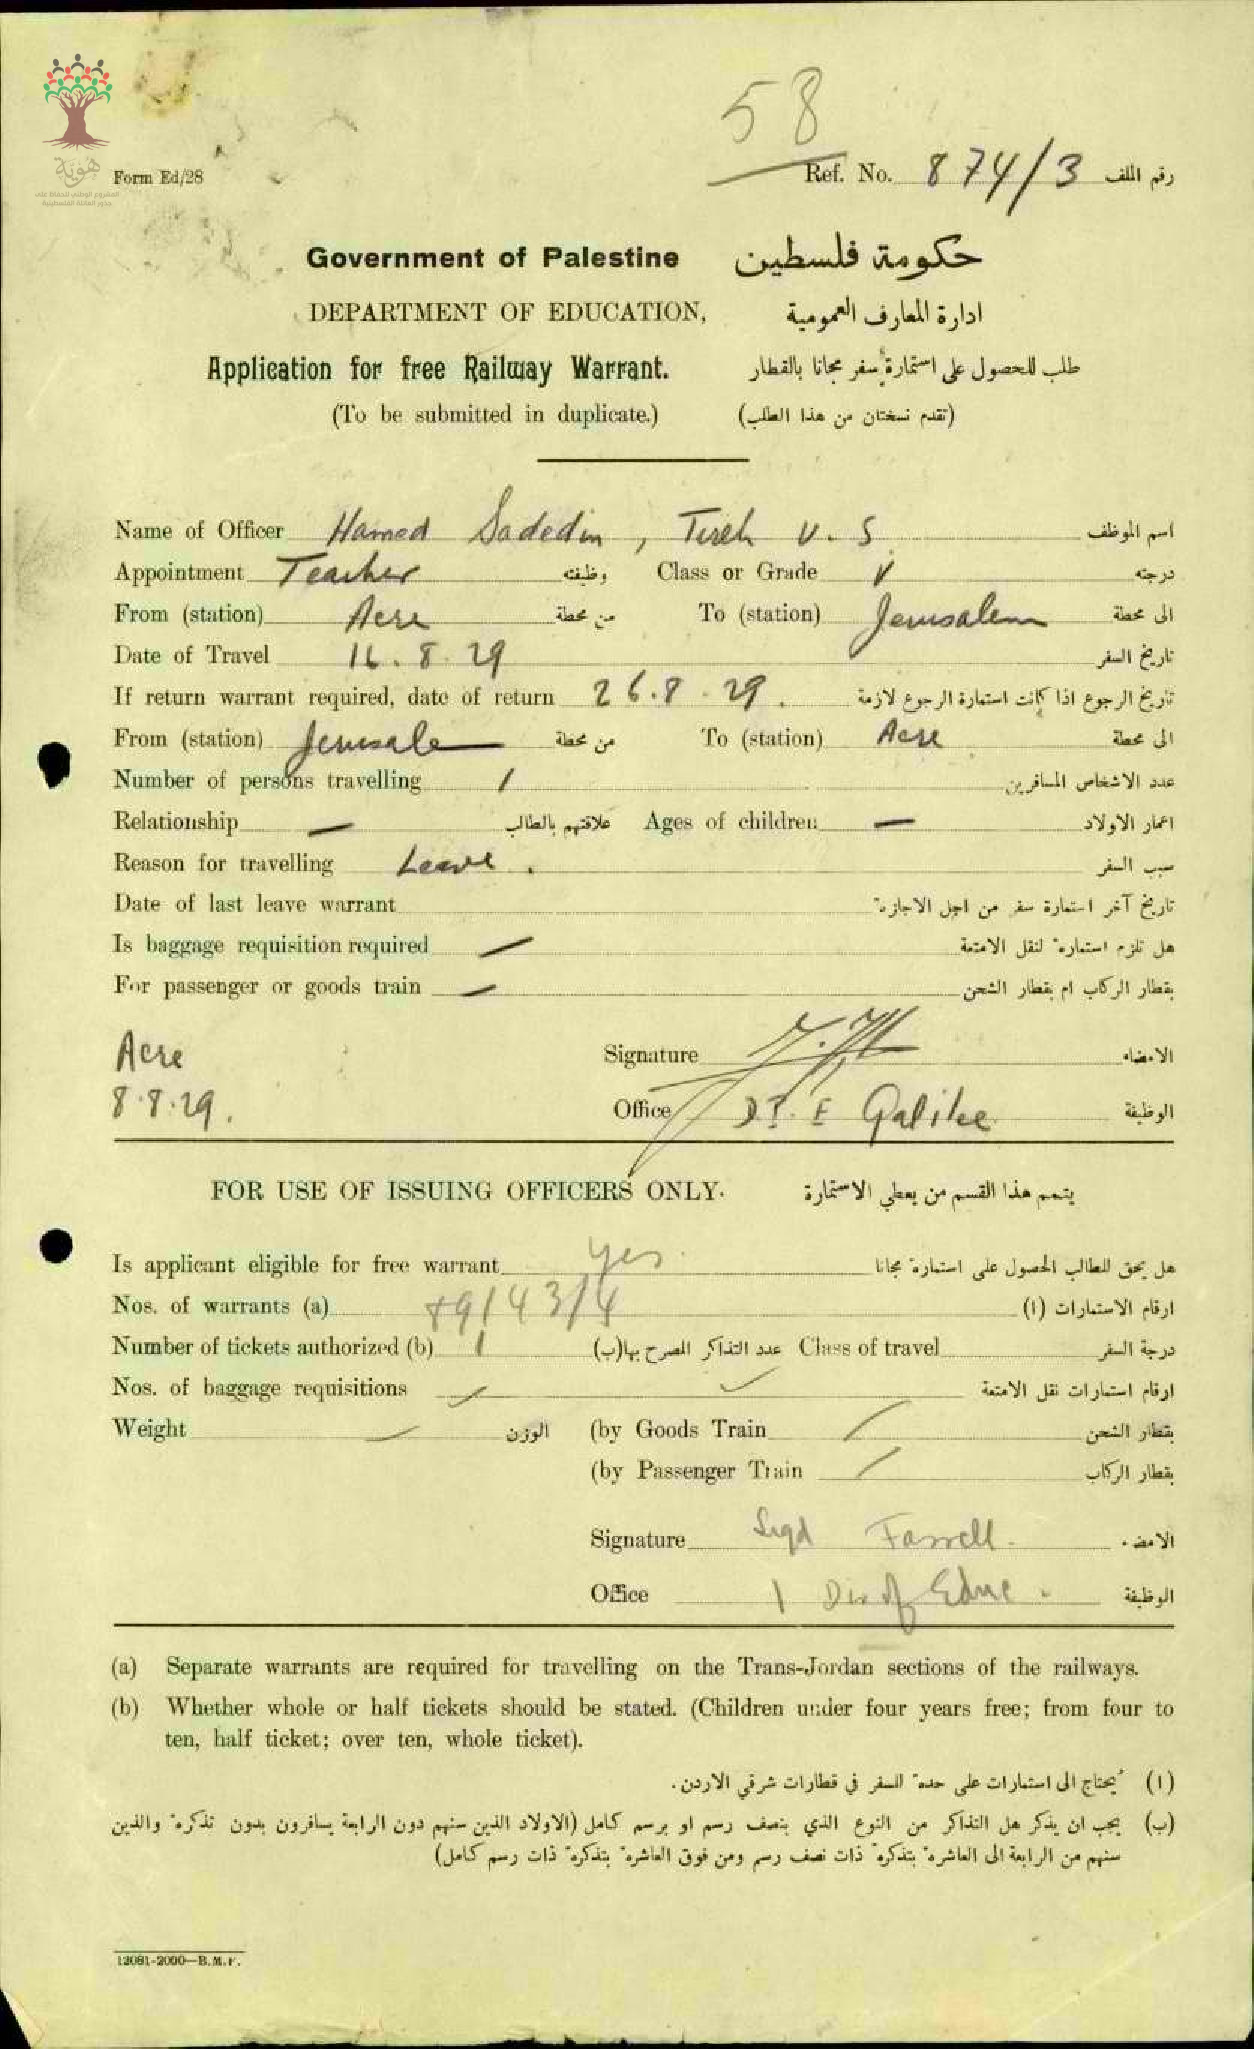 58
هوية
المشروع الوطني للحفاظ على
جذور العائلة الفلسطينية
Form Ed/28
Ref. No. 874/3 رقم الملف
Government of Palestine حكومة فلسطين
DEPARTMENT OF EDUCATION, ادارة المعارف العمومية
Application for free Railway Warrant. طلب للحصول على استمارة سفر مجانا بالقطار
(To be submitted in duplicate.) (تقدم نسختان من هذا الطلب)
Name of Officer Hamed Sadedin, Tireh V. S اسم الموظف
Appointment Teacher وظيفته Class or Grade V درجته
From (station) Acre من محطة To (station) Jerusalem الى محطة
Date of Travel 16.8.29 تاريخ السفر
If return warrant required, date of return 26.8.29. تاريخ الرجوع اذا كانت استمارة الرجوع لازمة
From (station) Jerusale من محطة To (station) Acre الى محطة
Number of persons travelling 1 عدد الاشخاص المسافرين
Relationship — علاقتهم بالطالب Ages of children — اعمار الاولاد
Reason for travelling Leave. سبب السفر
Date of last leave warrant تاريخ آخر استمارة سفر من اجل الاجازة
Is baggage requisition required — هل تلزم استمارة لنقل الامتعة
For passenger or goods train — بقطار الركاب ام بقطار الشحن
Acre Signature الامضاء
8.8.29. Office D.I. E Galilee الوظيفة
FOR USE OF ISSUING OFFICERS ONLY. يتمم هذا القسم من يعطي الاستمارة
Is applicant eligible for free warrant yes هل يحق للطالب الحصول على استمارة مجانا
Nos. of warrants (a) 89143/4 ارقام الاستمارات (ا)
Number of tickets authorized (b) 1 عدد التذاكر المصرح بها(ب) Class of travel درجة السفر
Nos. of baggage requisitions ارقام استمارات نقل الامتعة
Weight الوزن (by Goods Train بقطار الشحن
(by Passenger Train بقطار الركاب
Signature Sigd Farrell. الامضاء
Office / Dir of Educ. الوظيفة
(a) Separate warrants are required for travelling on the Trans-Jordan sections of the railways.
(b) Whether whole or half tickets should be stated. (Children under four years free; from four to
ten, half ticket; over ten, whole ticket).
(ا) يحتاج الى استمارات على حدة للسفر في قطارات شرقي الاردن.
(ب) يجب ان يذكر هل التذاكر من النوع الذي بنصف رسم او برسم كامل (الاولاد الذين سنهم دون الرابعة يسافرون بدون تذكرة والذين
سنهم من الرابعة الى العاشرة بتذكرة ذات نصف رسم ومن فوق العاشرة بتذكرة ذات رسم كامل)
12081-2000—B.M.F.